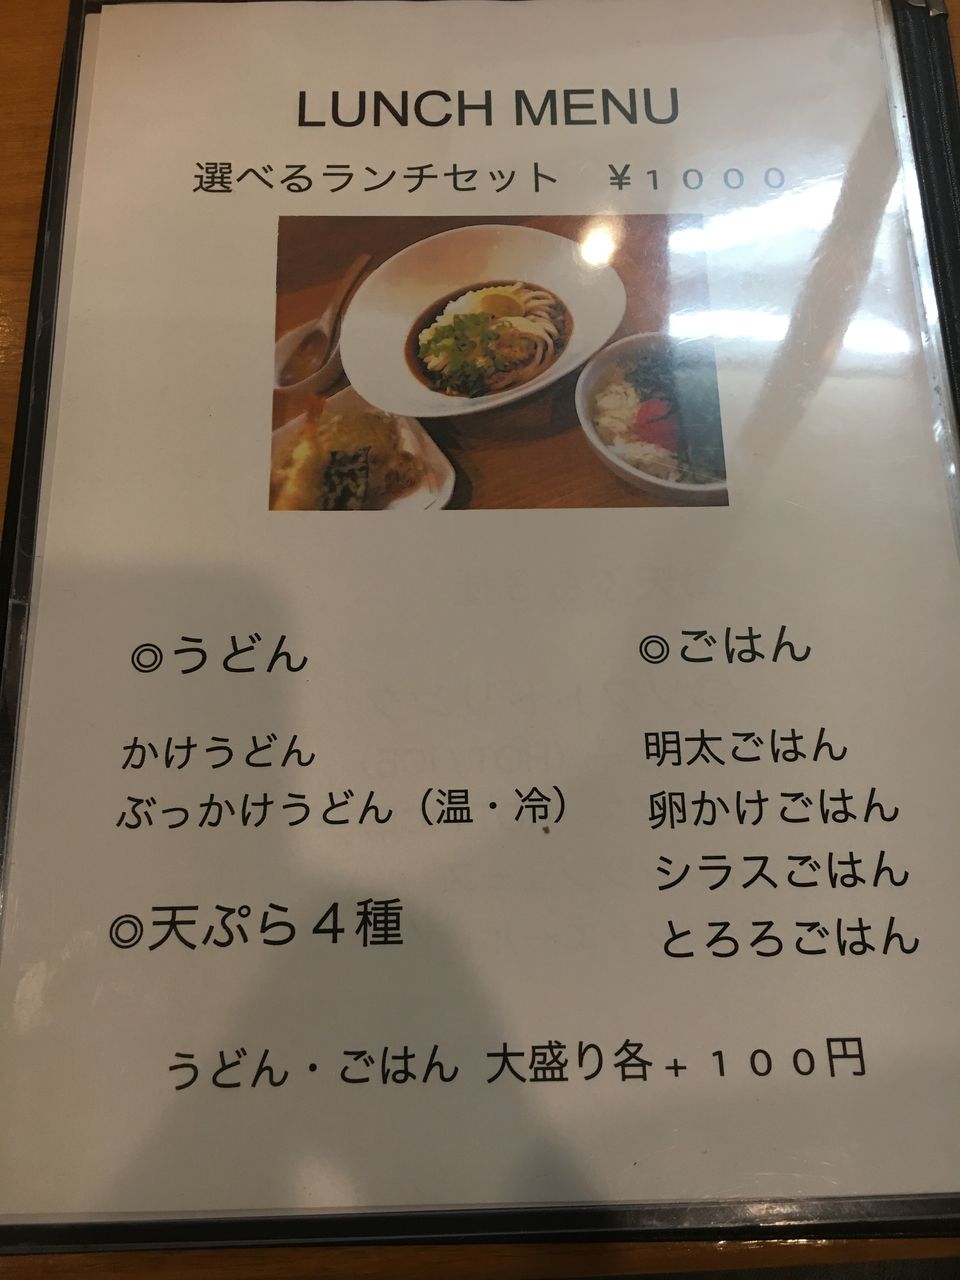 LUNCH MENU
選べるランチセット　¥１０００
◎うどん
かけうどん
ぶっかけうどん（温・冷）
◎天ぷら４種
◎ごはん
明太ごはん
卵かけごはん
シラスごはん
とろろごはん
うどん・ごはん 大盛り各+１００円